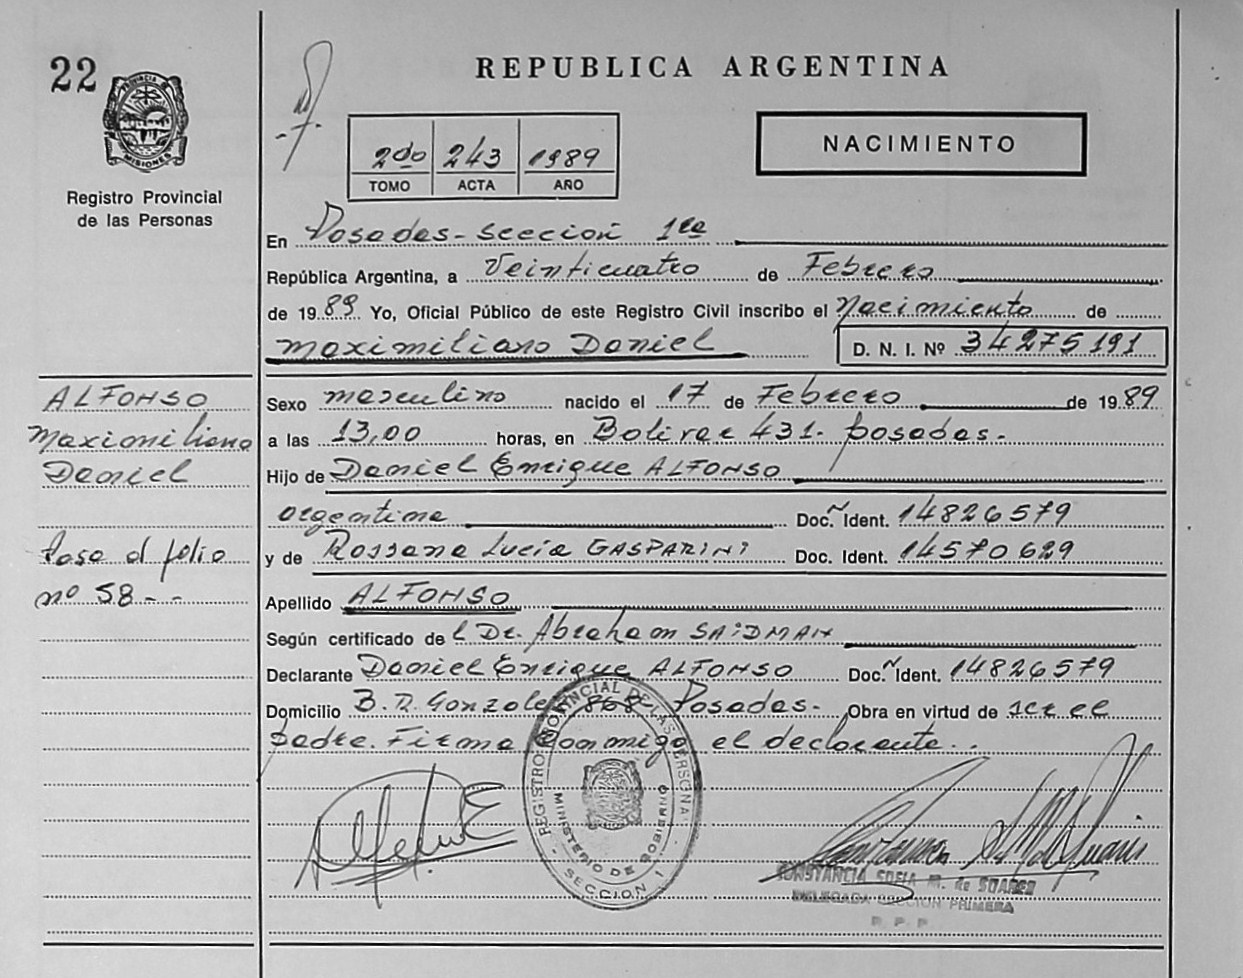 22
PROVINCIA DE
MISIONES
Registro Provincial
de las Personas
REPUBLICA ARGENTINA
2do 243 1989
TOMO ACTA AÑO
NACIMIENTO
En Posadas - Sección 1ra
República Argentina, a Veinticuatro de Febrero
de 1989 Yo, Oficial Público de este Registro Civil inscribo el Nacimiento de
Maximiliano Daniel D. N. I. Nº 34275191
ALFONSO
Maximiliano
Daniel
Pasa al folio
nº 58 - -
Sexo masculino nacido el 17 de Febrero de 1989
a las 13,00 horas, en Bolivar 431 - Posadas -
Hijo de Daniel Enrique ALFONSO
argentino Doc. Ident. 14826579
y de Rossana Lucía GASPARINI Doc. Ident. 14570629
Apellido ALFONSO
Según certificado de l Dr. Abraham SAIDMAN
Declarante Daniel Enrique ALFONSO Doc. Ident. 14826579
Domicilio B. R. Gonzalez 868 Posadas - Obra en virtud de ser el
padre. Firma conmigo el declarante..
REGISTRO PROVINCIAL DE LAS PERSONAS
MINISTERIO DE GOBIERNO
- SECCION 1 -
CONSTANCIA SOFIA M. de SUAREZ
DELEGADA SECCION PRIMERA
R. P. P.